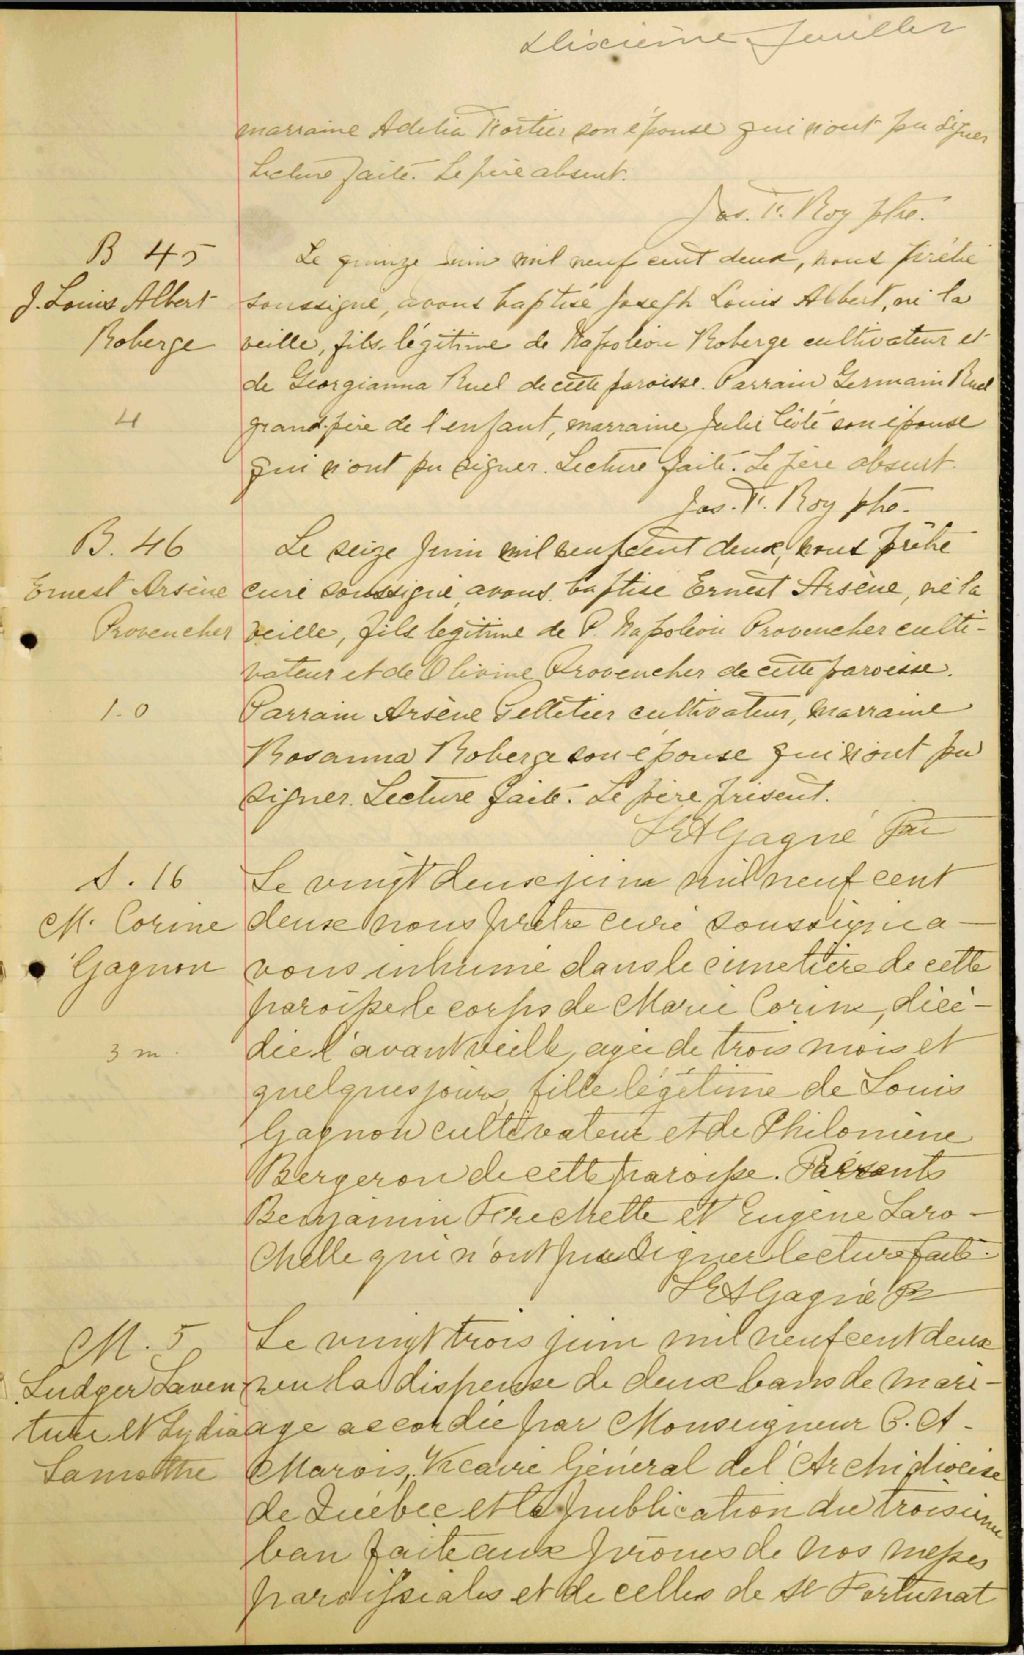 Dixième Feuillet
marraine Adelia Fortier son épouse qui n'ont pu signer
Lecture faite. Le père absent.
Jos. F. Roy ptre.
B 45
J. Louis Albert
Roberge
4
Le quinze Juin mil neuf cent deux, nous prêtre
soussigné, avons baptisé Joseph Louis Albert, né la
veille, fils légitime de Napoléon Roberge cultivateur et
de Georgianna Ruel de cette paroisse. Parrain Germain Ruel
grand-père de l'enfant, marraine Julie Côté son épouse
qui n'ont pu signer. Lecture faite. Le père absent.
Jos. F. Roy ptre.
B. 46
Ernest Arsène
Provencher
1.0
Le seize Juin mil neuf cent deux, nous prêtre
curé soussigné, avons baptisé Ernest Arsène, né la
veille, fils légitime de P. Napoléon Provencher culti-
vateur et de Olivine Provencher de cette paroisse.
Parrain Arsène Pelletier cultivateur, marraine
Rosanna Roberge son épouse qui n'ont pu
signer. Lecture faite. Le père présent.
Gagné Ptre
S. 16
M. Corine
Gagnon
3 m.
Le vingt deux juin mil neuf cent
deux nous prêtre curé soussigné a-
vons inhumé dans le cimetière de cette
paroisse le corps de Marie Corine, décé-
dée l'avant veille, agée de trois mois et
quelques jours, fille légitime de Louis
Gagnon cultivateur et de Philomène
Bergeron de cette paroisse. Présents
Benjamin Frechette et Eugène Laro-
chelle qui n'ont pu signer lecture faite.
Gagné Ptr
M. 5
Ludger Laven
ture et Lydia
Lamothe
Le vingt trois juin mil neuf cent deux
vu la dispense de deux bans de mari-
age accordée par Monseigneur C. A.
Marois, Vicaire Général de l'Archidiocèse
de Québec et la publication du troisième
ban faite aux prônes de nos messes
paroissiales et de celles de St Fortunat